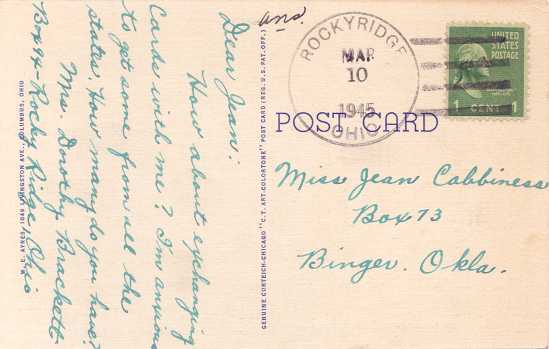 ans.
Dear Jean:
How about exchanging
Cards with me? I'm anxious
to get some from all the
states. How many do you have?
Mrs. Dorothy Brackett
Box 94 - Rocky Ridge, Ohio
ROCKYRIDGE
MAR
10
1945
OHIO
UNITED
STATES
POSTAGE
1 CENT 1
POST CARD
Miss Jean Cabbiness
Box 73
Binger. Okla.
GENUINE CURTEICH-CHICAGO "C.T. ART-COLORTONE" POST CARD (REG. U.S. PAT. OFF.)
W. E. AYRES LIVINGSTON AVE., COLUMBUS, OHIO